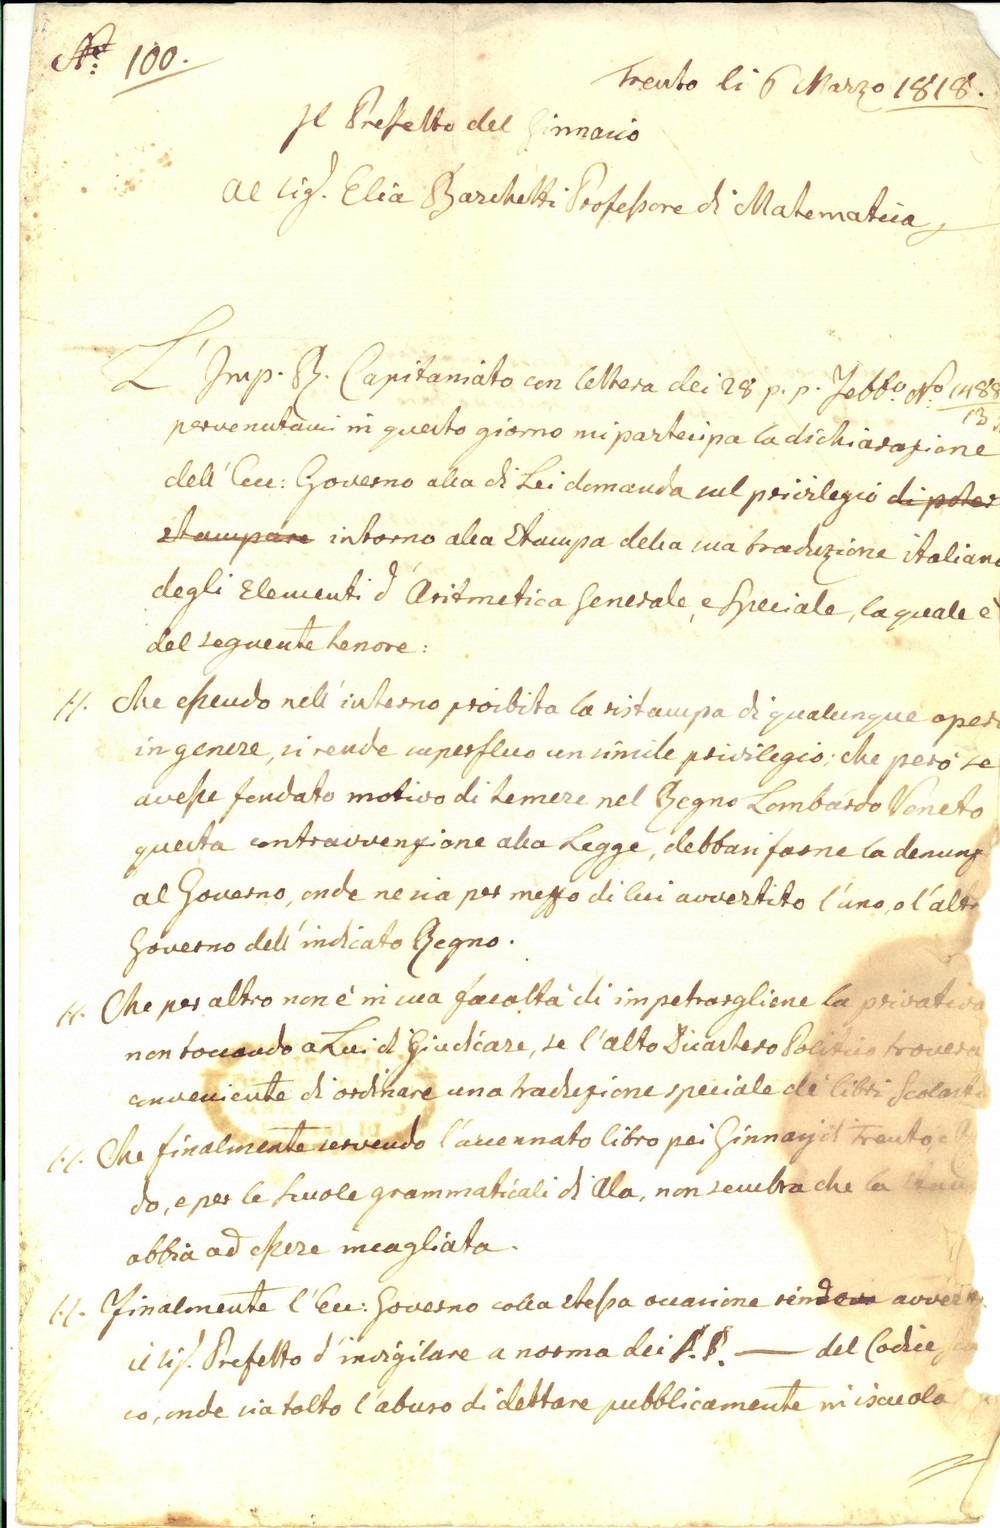 N.º 100.
Trento li 6 Marzo 1818.
Il Prefetto del Ginnasio
Al Sig.r Elia Barchetti Professore di Matematica
L'Imp. R. Capitaniato con lettera dei 28 p. p. Febb.º N.º 1488
13
pervenutami in questo giorno mi partecipa la dichiarazione
dell'Ecc: Governo alla di Lei domanda sul privilegio di poter
stampare intorno alla stampa della sua traduzione italiana
degli Elementi d'Aritmetica Generale, e Speciale, la quale è
del seguente tenore:
Che essendo nell'interno proibita la ristampa di qualunque opera
in genere, si rende superfluo un simile privilegio; che però se
avesse fondato motivo di temere nel Regno Lombardo Veneto
questa contravvenzione alla Legge, debbasi farne la denunz
al Governo, onde ne sia per mezzo di lui avvertito l'uno, o l'altro
Governo dell'indicato Regno.
Che per altro non è in sua facoltà di impetrargliene la privativa
non toccando a Lui di Giudicare, se l'alto Dicastero Politico troverà
conveniente di ordinare una traduzione speciale de' libri Scolast
Che finalmente servendo l'accennato libro pei Ginnasj di Trento, e
do, e per le Scuole grammaticali di Ala, non sembra che la
abbia ad essere incagliata.
Finalmente l'Ecc: Governo colla stessa occasione
il Sig.r Prefetto d'invigilare a norma dei §. §. — del Codice
co, onde sia tolto l'abuso di dettare pubblicamente in iscuola